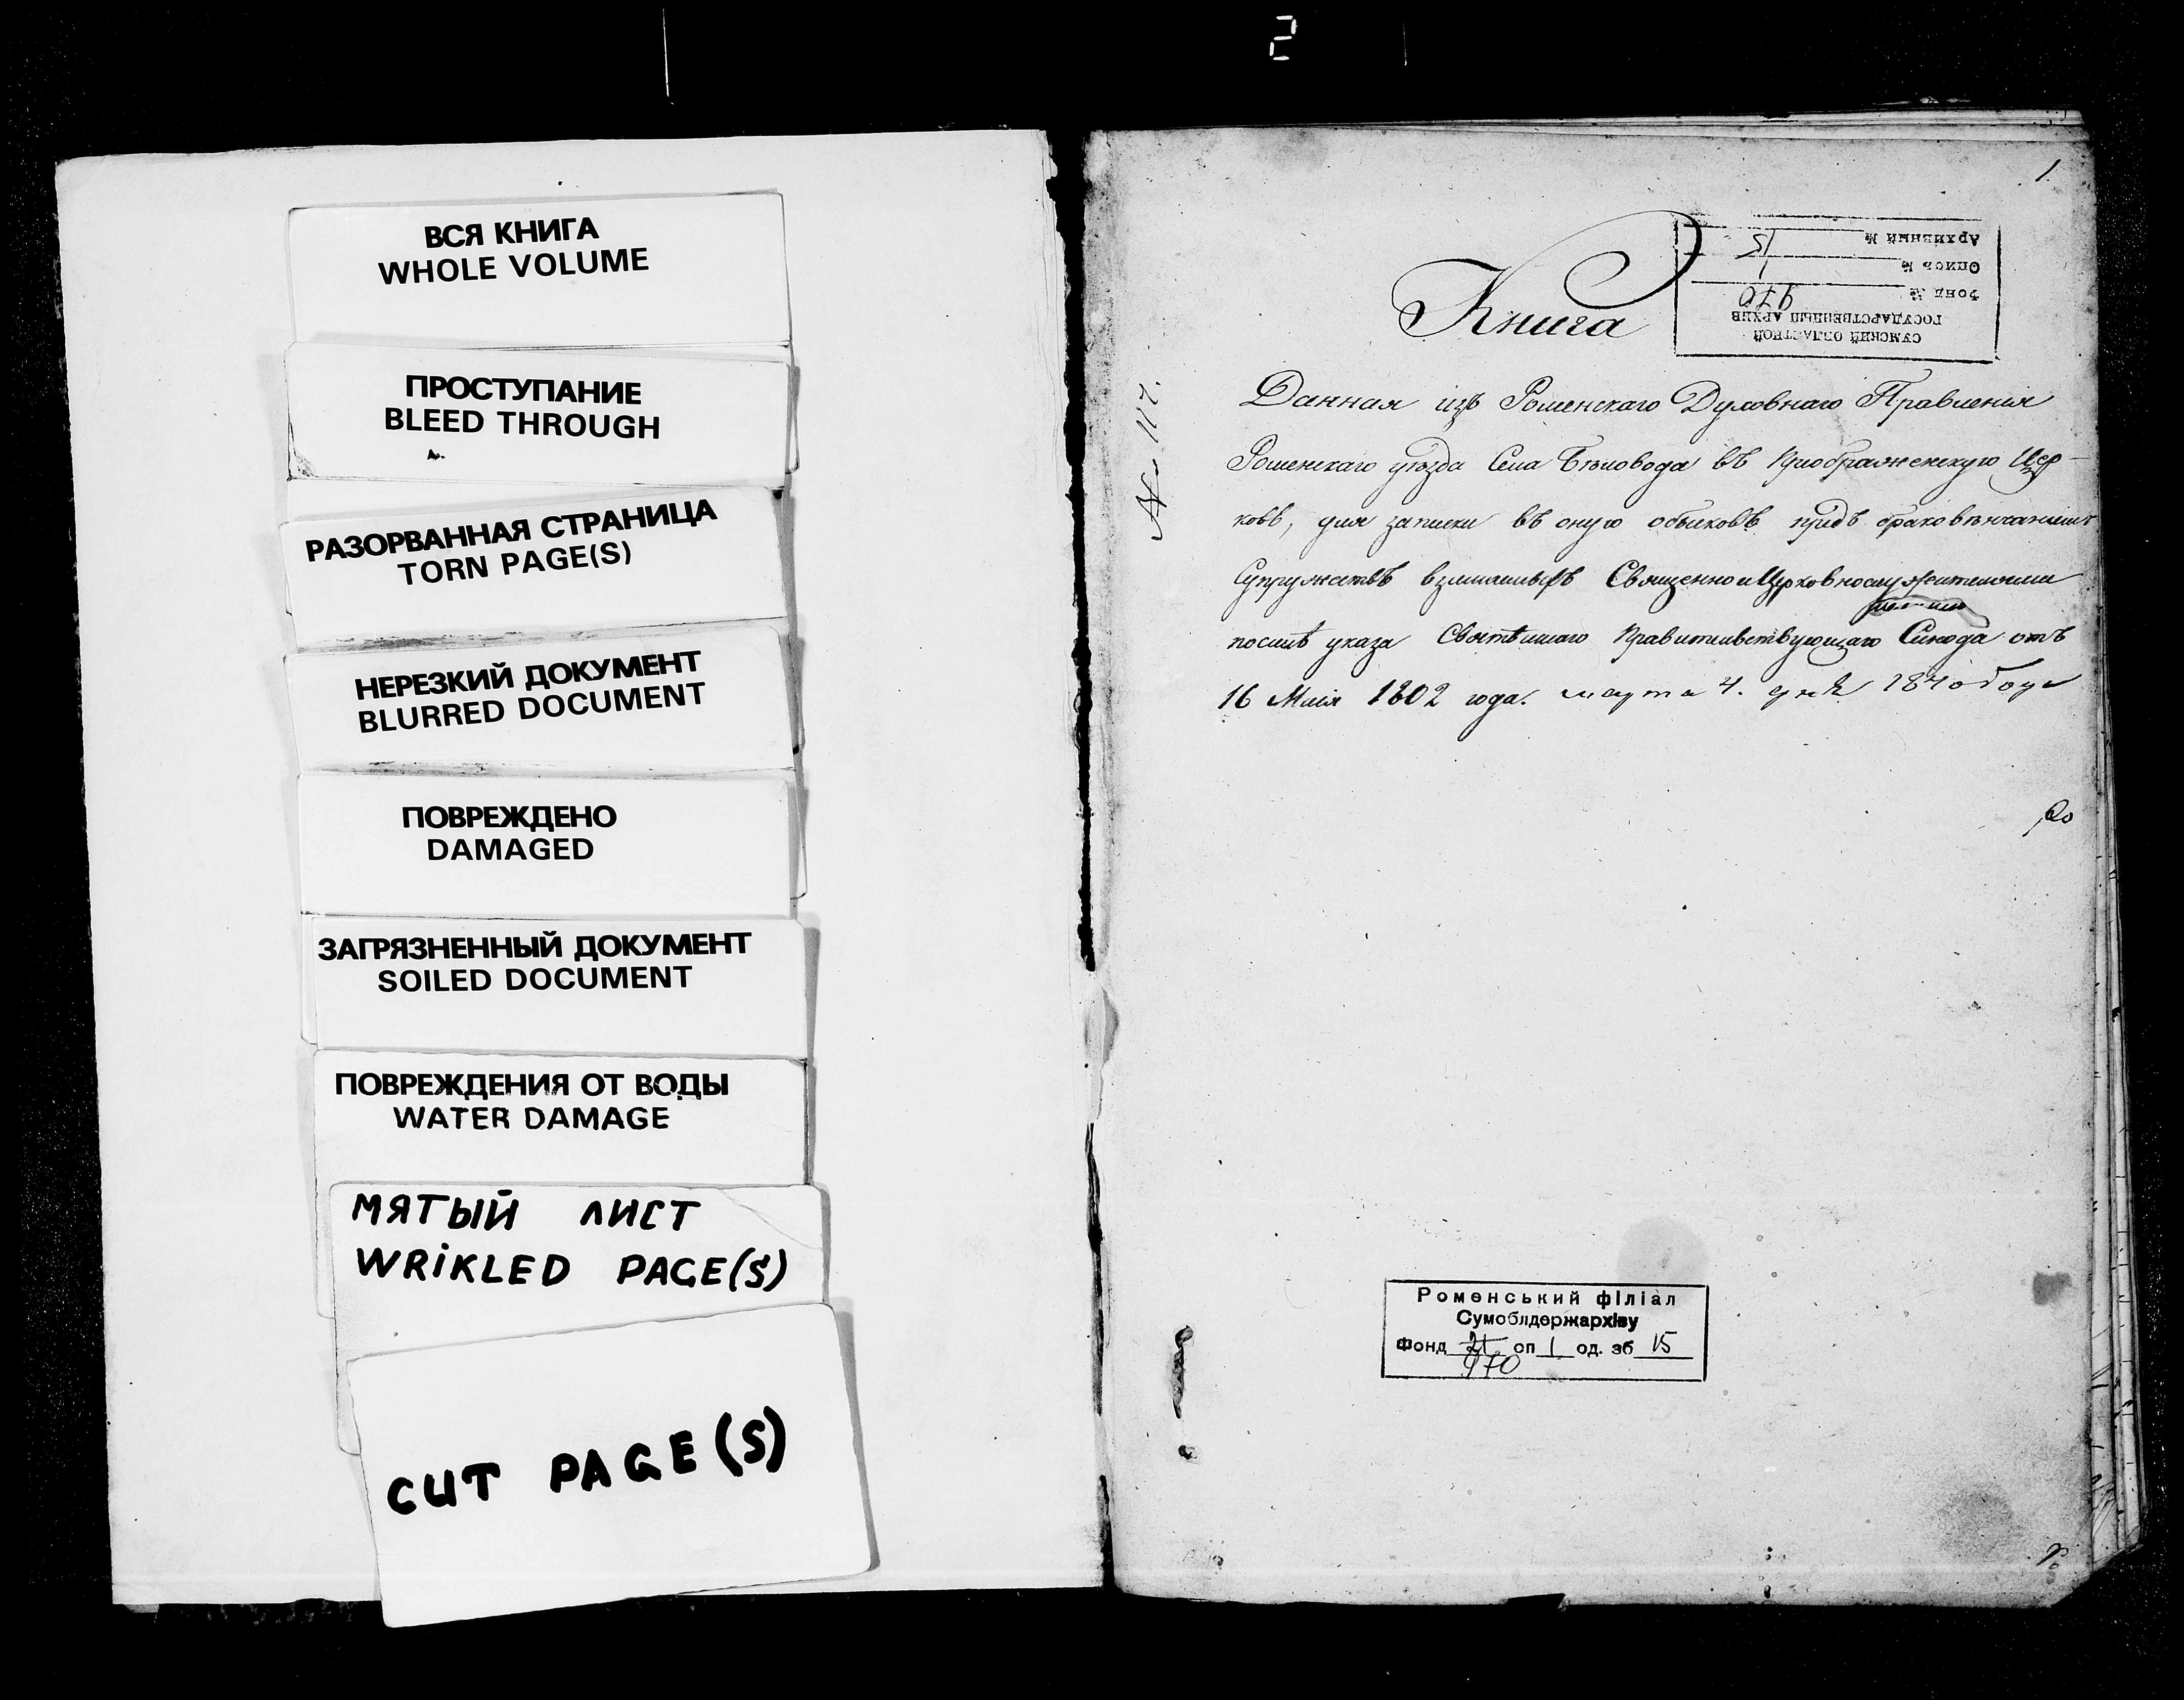 2
ВСЯ КНИГА
WHOLE VOLUME
ПРОСТУПАНИЕ
BLEED THROUGH
РАЗОРВАННАЯ СТРАНИЦА
TORN PAGE(S)
НЕРЕЗКИЙ ДОКУМЕНТ
BLURRED DOCUMENT
ПОВРЕЖДЕНО
DAMAGED
ЗАГРЯЗНЕННЫЙ ДОКУМЕНТ
SOILED DOCUMENT
ПОВРЕЖДЕНИЯ ОТ ВОДЫ
WATER DAMAGE
МЯТЫЙ ЛИСТ
WRIKLED PAGE(S)
CUT PAGE(S)
1.
СУМСКИЙ ОБЛАСТНОЙ
ГОСУДАРСТВЕННЫЙ АРХИВ
Фонд № 970
Опись № 1
Архивный № 15
Книга
Данная изъ Роменскаго Духовнаго Правленія
Роменскаго уѣзда Села Бѣловода въ Преображенскую Цер-
ковь, для записки въ оную обысковъ предъ браковѣнчаніемъ
Супружествъ Священно и Церковнослужителями
послѣ указа Святѣйшаго Правительствующаго Синода отъ
16 Маія 1802 года. марта 4. дня 1840 году
Роменський філіал
Сумоблдержархіву
Фонд 21 оп 1 од. зб 15
970